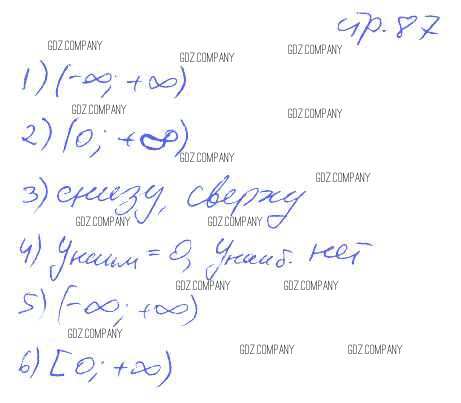 стр. 87
GDZ.COMPANY GDZ.COMPANY GDZ.COMPANY
1) (-∞; +∞)
GDZ.COMPANY GDZ.COMPANY
2) (0; +∞)
GDZ.COMPANY
GDZ.COMPANY
3) снизу, сверху
GDZ.COMPANY GDZ.COMPANY
4) Yнаим = 0, Yнаиб. нет
GDZ.COMPANY GDZ.COMPANY
5) (-∞; +∞)
GDZ.COMPANY
GDZ.COMPANY GDZ.COMPANY
6) [0; +∞)